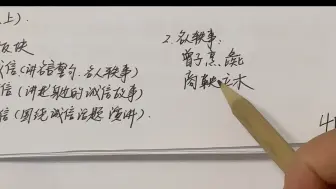 上）.
信（讲名言警句、名人轶事）
信（讲述身边的诚信故事）
信（围绕诚信话题演讲）.
2. 名人轶事：
曾子烹彘
商鞅立木